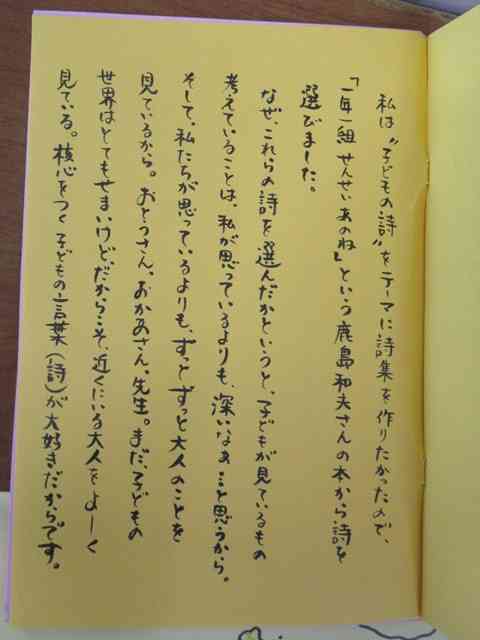 私は〝子どもの詩〟をテーマに詩集を作りたかったので、
「一年一組せんせいあのね」という鹿島和夫さんの本から詩を
選びました。
なぜ、これらの詩を選んだかというと、子どもが見ているもの
考えていることは、私が思っているよりも、深いなぁ…と思うから。
そして、私たちが思っているよりも、ずっとずっと大人のことを
見ているから。おとうさん、おかあさん、先生。まだ、子どもの
世界はとてもせまいけど、だからこそ、近くにいる大人をよーく
見ている。核心をつく子どもの言葉(詩)が大好きだからです。